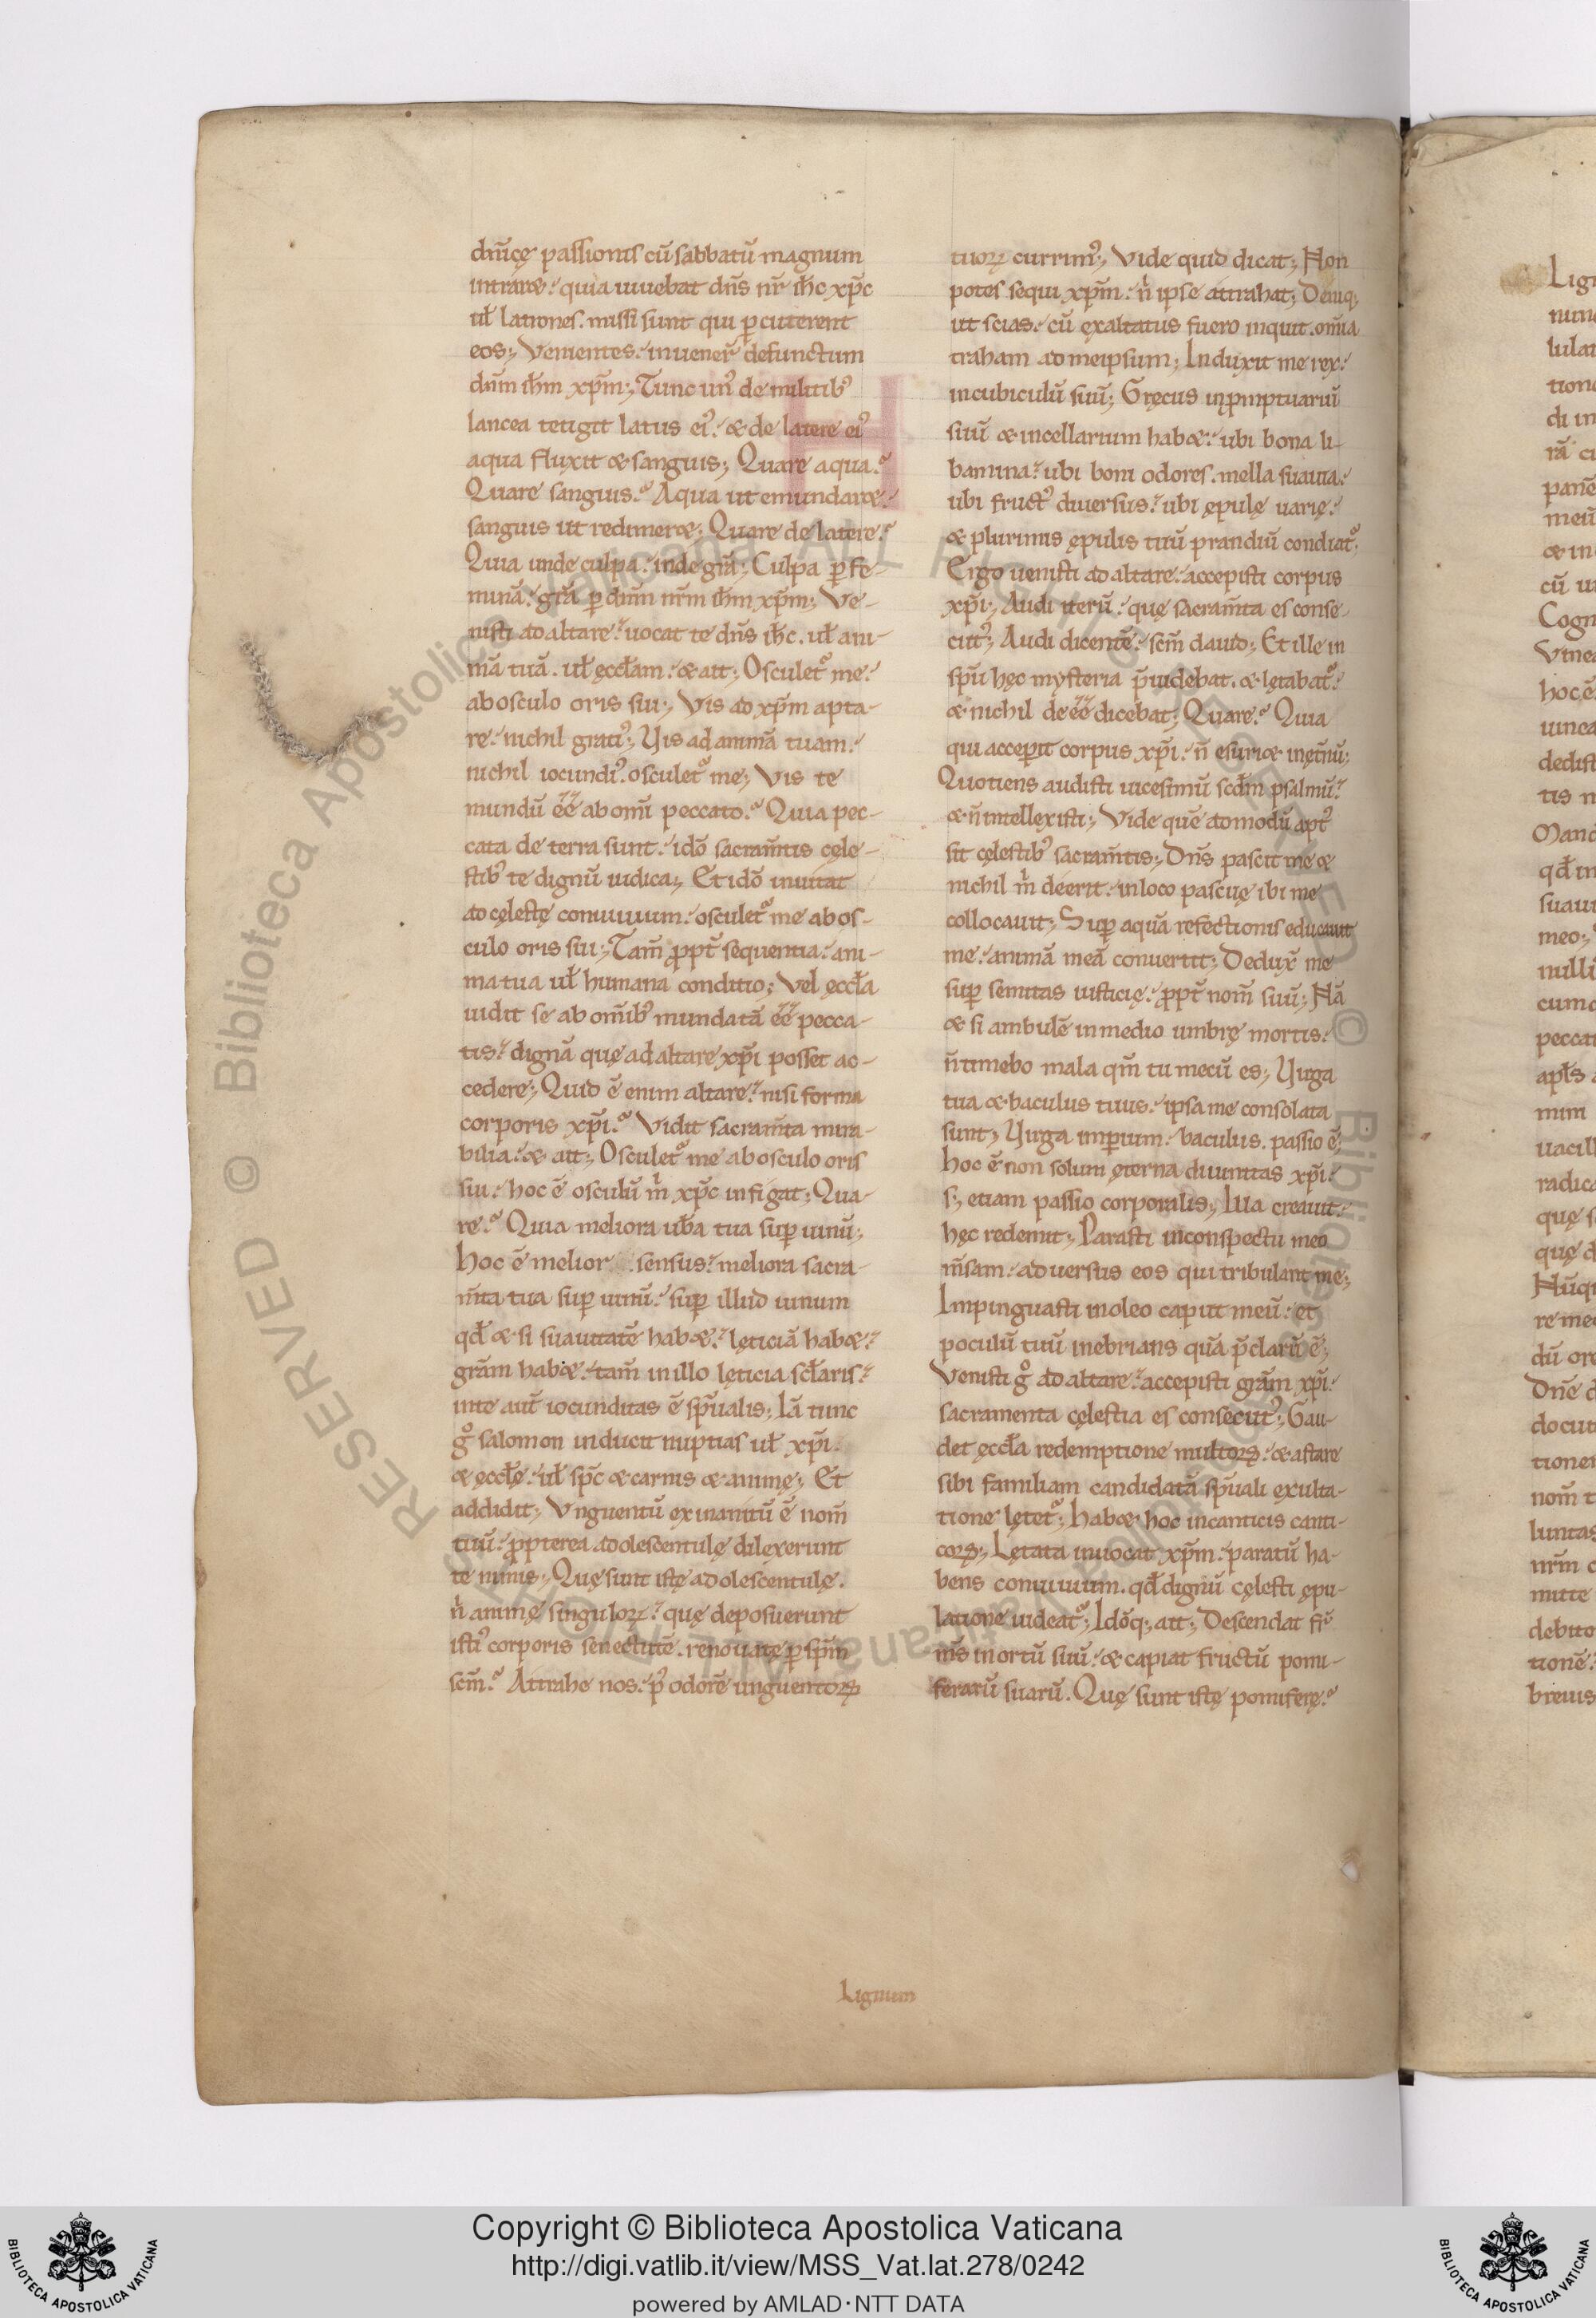 dñicę passionis cũ sabbatũ magnum
intraret. quia uiuebat dñs nr̃ ih̃c xp̃c
ul̃ latrones. missi sunt qui ꝑcuterent
eos; Venientes. inuener̃ defunctum
dñm ih̃m xp̃m; Tunc un᾽ de militib᾽
lancea tetigit latus ei᾽. & de latere ei᾽
aqua fluxit & sanguis; Quare aqua?
Quare sanguis? Aqua ut emundaret.
sanguis ut redimeret; Quare de latere?
Quia unde culpa. inde grã; Culpa ꝑ fe-
minã. grã ꝑ dñm nr̃m ih̃m xp̃m; Ve-
nisti ad altare. uocat te dñs ih̃c. ul̃ ani-
mã tuã. ul̃ ęccl̃am. & ait; Osculet᾽ me.
ab osculo oris sui; Vis ad xp̃m apta-
re. nichil grati᾽; Vis ad animã tuam.
nichil iocundi᾽. osculet᾽ me; Vis te
mundũ ẽẽ ab omĩ peccato? Quia pec-
cata de terra sunt. idõ sacram̃tis cęle-
stib᾽ te dignũ iudica; Et idõ inuitat
ad cęleste conuiuium. osculet᾽ me ab os-
culo oris sui; Tam̃ ꝓpt̃ sequentia. ani-
ma tua ul̃ humana conditio; Vel ęccl̃a
uidit se ab om̃ib᾽ mundatã ẽẽ pecca-
tis. dignã quę ad altare xp̃i posset ac-
cedere; Quid ẽ enim altare. nisi forma
corporis xp̃i? Vidit sacram̃ta mira-
bilia. & ait; Osculet᾽ me ab osculo oris
sui. hoc ẽ osculũ m̃ xp̃c infigat; Qua-
re? Quia meliora ub̃a tua suꝑ uinũ;
hoc ẽ melior sensus. meliora sacra-
m̃ta tua suꝑ uinũ. suꝑ illud uinum
qd̃ & si suauitatẽ habet. lęticiã habet.
grãm habet. tam̃ in illo lęticia scl̃aris.
in te aut̃ iocunditas ẽ sp̃ualis; Iã tunc
gº salomon inducit nuptias ul̃ xp̃i.
& ęccl̃ę. ul̃ sp̃c & carnis & animę; Et
addidit; Vnguentũ exinanitũ ẽ nom̃
tuũ. ꝓpterea adolescentulę dilexerunt
te nimis; Quę sunt istę adolescentulę.
ñ animę singuloꝝ. quę deposuerunt
isti᾽ corporis senectutẽ. renouatę ꝑ sp̃m
scm̃? Attrahe nos. p᾽ odorẽ unguentoꝝ
tuoꝝ currim᾽; Vide quid dicat; Non
potes sequi xp̃m. ñ ipse attrahat; Deniq;
ut scias. cũ exaltatus fuero inquit. om̃ia
traham ad meipsum; Induxit me rex.
in cubiculũ suũ; Gręcus in ꝓmptuariũ
suũ & in cellarium habet. ubi bona li-
bamina. ubi boni odores. mella suauia.
ubi fruct᾽ diuersus. ubi ępulę uarię.
& plurimis ępulis tuũ prandiũ condiat᾽;
Ergo uenisti ad altare. accepisti corpus
xp̃i; Audi iterũ. quę sacram̃ta es conse-
cut᾽; Audi dicentẽ. scm̃ dauid; Et ille in
sp̃u hęc mysteria p̃uidebat. & lętabat᾽.
& nichil deẽẽ dicebat; Quare? Quia
qui acceperit corpus xp̃i. ñ esuriet inęt̃nũ;
Quotiens audisti uicesimũ scd̃m psalmũ.
& ñ intellexisti; Vide quẽadmodũ apt᾽
sit cęlestib᾽ sacram̃tis; Dñs pascit me &
nichil m̃ deerit. in loco pascuę ibi me
collocauit; Suꝑ aquã refectionis educauit
me. animã meã conuertit; Dedux̃ me
suꝑ semitas iusticię. ꝓpt̃ nom̃ suũ; Nã
& si ambulẽ in medio umbrę mortis.
ñ timebo mala qm̃ tu mecũ es; Virga
tua & baculus tuus. ipsa me consolata
sunt; Virga imꝑium. baculus. passio ẽ;
hoc ẽ non solum ęterna diuinitas xp̃i.
s; etiam passio corporalis; Illa creauit.
hęc redemit; Parasti in conspectu meo
m̃sam. aduersus eos qui tribulant me;
Impinguasti in oleo caput meũ. et
poculũ tuũ inebrians quã p̃clarũ ẽ;
Venisti gº ad altare. accepisti grãm xp̃i.
sacramenta cęlestia es consecut᾽; Gau-
det ęccl̃a redemptione multoꝝ. & astare
sibi familiam candidatã sp̃uali exulta-
tione lętet᾽; habet hoc in canticis canti-
coꝝ; Lętata inuocat xp̃m. paratũ ha-
bens conuiuium. qd̃ dignũ cęlesti ępu-
latione uideat᾽; Idõq; ait; Descendat fr̃
m̃s in ortũ suũ. & capiat fructũ pomi-
ferarũ suarũ. Quę sunt istę pomiferę?
Lignum
Copyright © Biblioteca Apostolica Vaticana
http://digi.vatlib.it/view/MSS_Vat.lat.278/0242
powered by AMLAD·NTT DATA